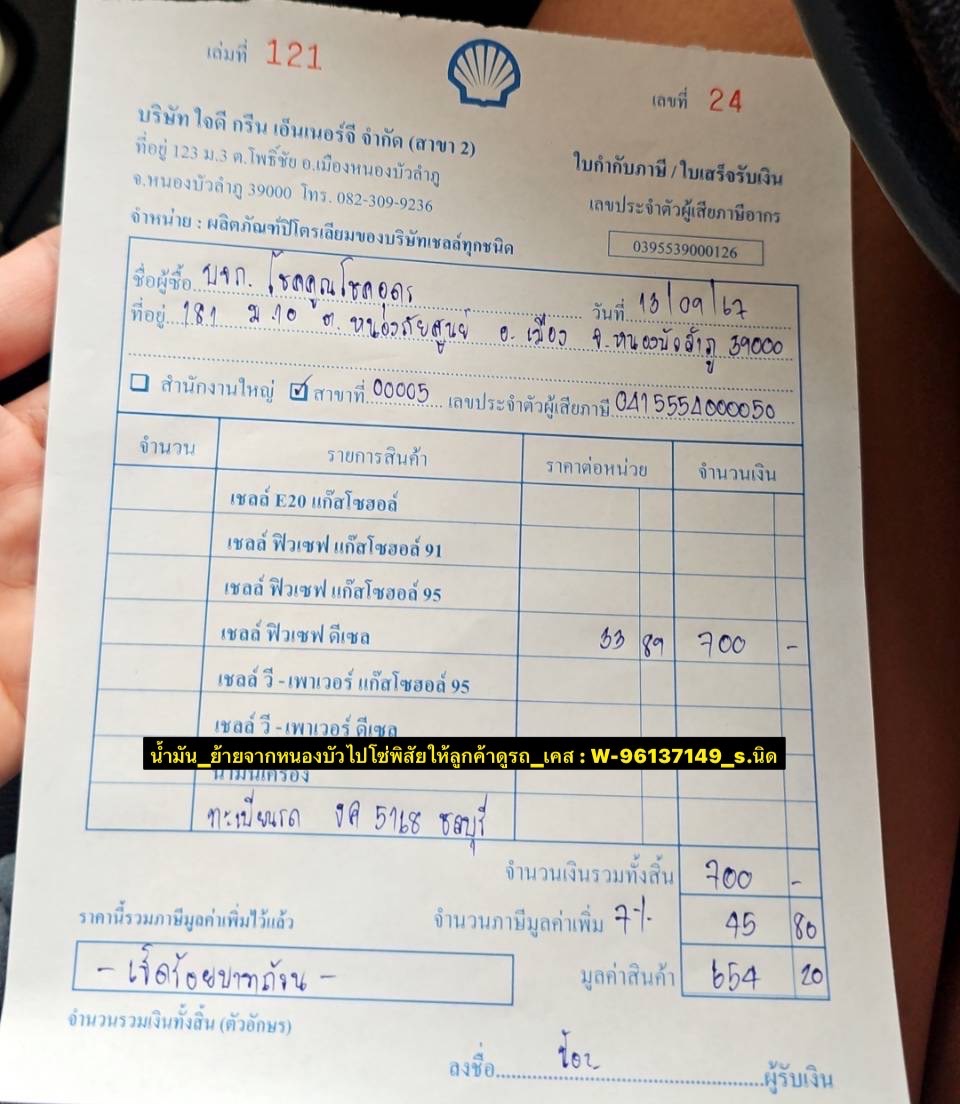 เล่มที่ 121
เลขที่ 24
บริษัท ใจดี กรีน เอ็นเนอร์จี จำกัด (สาขา 2)
ที่อยู่ 123 ม.3 ต.โพธิ์ชัย อ.เมืองหนองบัวลำภู
จ.หนองบัวลำภู 39000 โทร. 082-309-9236
จำหน่าย : ผลิตภัณฑ์ปิโตรเลียมของบริษัทเชลล์ทุกชนิด
ใบกำกับภาษี / ใบเสร็จรับเงิน
เลขประจำตัวผู้เสียภาษีอากร
0395539000126
ชื่อผู้ซื้อ บจก. โชคคูณโชคอุดร วันที่ 13/09/67
ที่อยู่ 181 ม 10 ต. หนองภัยศูนย์ อ. เมือง จ. หนองบัวลำภู 39000
สำนักงานใหญ่ ☑ สาขาที่ 00005 เลขประจำตัวผู้เสียภาษี 0415554000050
จำนวน รายการสินค้า ราคาต่อหน่วย จำนวนเงิน
เชลล์ E20 แก๊สโซฮอล์
เชลล์ ฟิวเซฟ แก๊สโซฮอล์ 91
เชลล์ ฟิวเซฟ แก๊สโซฮอล์ 95
เชลล์ ฟิวเซฟ ดีเซล 33 89 700 -
เชลล์ วี - เพาเวอร์ แก๊สโซฮอล์ 95
เชลล์ วี - เพาเวอร์ ดีเซล
น้ำมัน_ย้ายจากหนองบัวไปโซ่พิสัยให้ลูกค้าดูรถ_เคส : W-96137149_s.นิด
น้ำมันเครื่อง
ทะเบียนรถ 5168 ชลบุรี
จำนวนเงินรวมทั้งสิ้น 700 -
ราคานี้รวมภาษีมูลค่าเพิ่มไว้แล้ว จำนวนภาษีมูลค่าเพิ่ม 7% 45 80
- เจ็ดร้อยบาทถ้วน - มูลค่าสินค้า 654 20
จำนวนรวมเงินทั้งสิ้น (ตัวอักษร)
ลงชื่อ ผู้รับเงิน